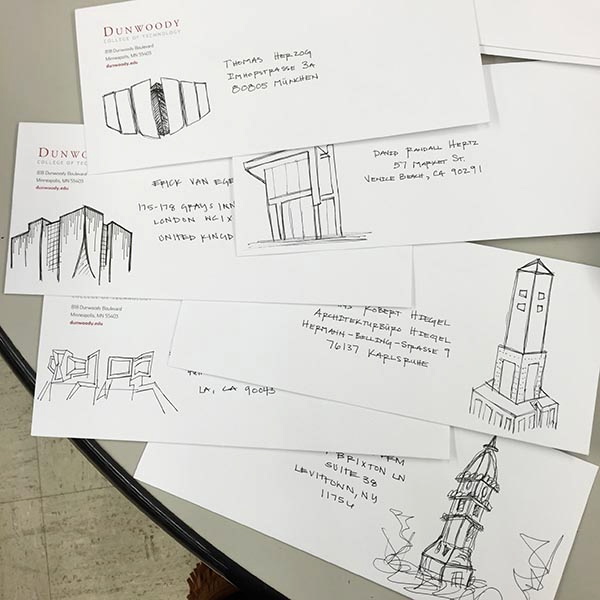 DUNWOODY
COLLEGE OF TECHNOLOGY
818 Dunwoody Boulevard
Minneapolis, MN 55403
dunwoody.edu
THOMAS HERZOG
IMHOFSTRASSE 3A
80805 MÜNCHEN
DUNWO
COLLEGE OF TEC
818 Dunwoody Boulevard
Minneapolis, MN 55403
dunwoody.edu
ERICK VAN EGE
175-178 GRAYS INN
LONDON WC1X
UNITED KINGD
DAVID RANDALL HERTZ
57 MARKET ST.
VENICE BEACH, CA 90291
ROBERT HIEGEL
ARCHITEKTURBÜRO HIEGEL
HERMANN-BELLING-STRASSE 9
76137 KARLSRUHE
COLLEGE OF TECHNOLOGY
818 Dunwoody Boulevard
Minneapolis, MN 55403
dunwoody.edu
LA, CA 90043
BRIXTON LN
SUITE 38
LEVITTOWN, NY
11756